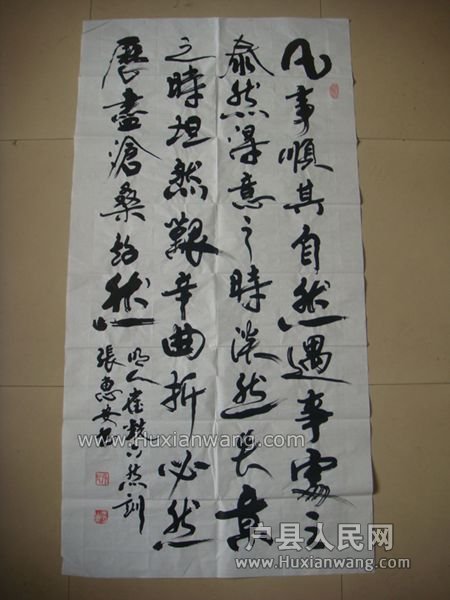 凡事順其自然遇事處之
泰然得意之時淡然失意
之時坦然艱辛曲折必然
歷盡滄桑然
明人崔銑六然訓
張惠安書
www.Huxianwang.com
户县人民网
www.Huxianwang.com